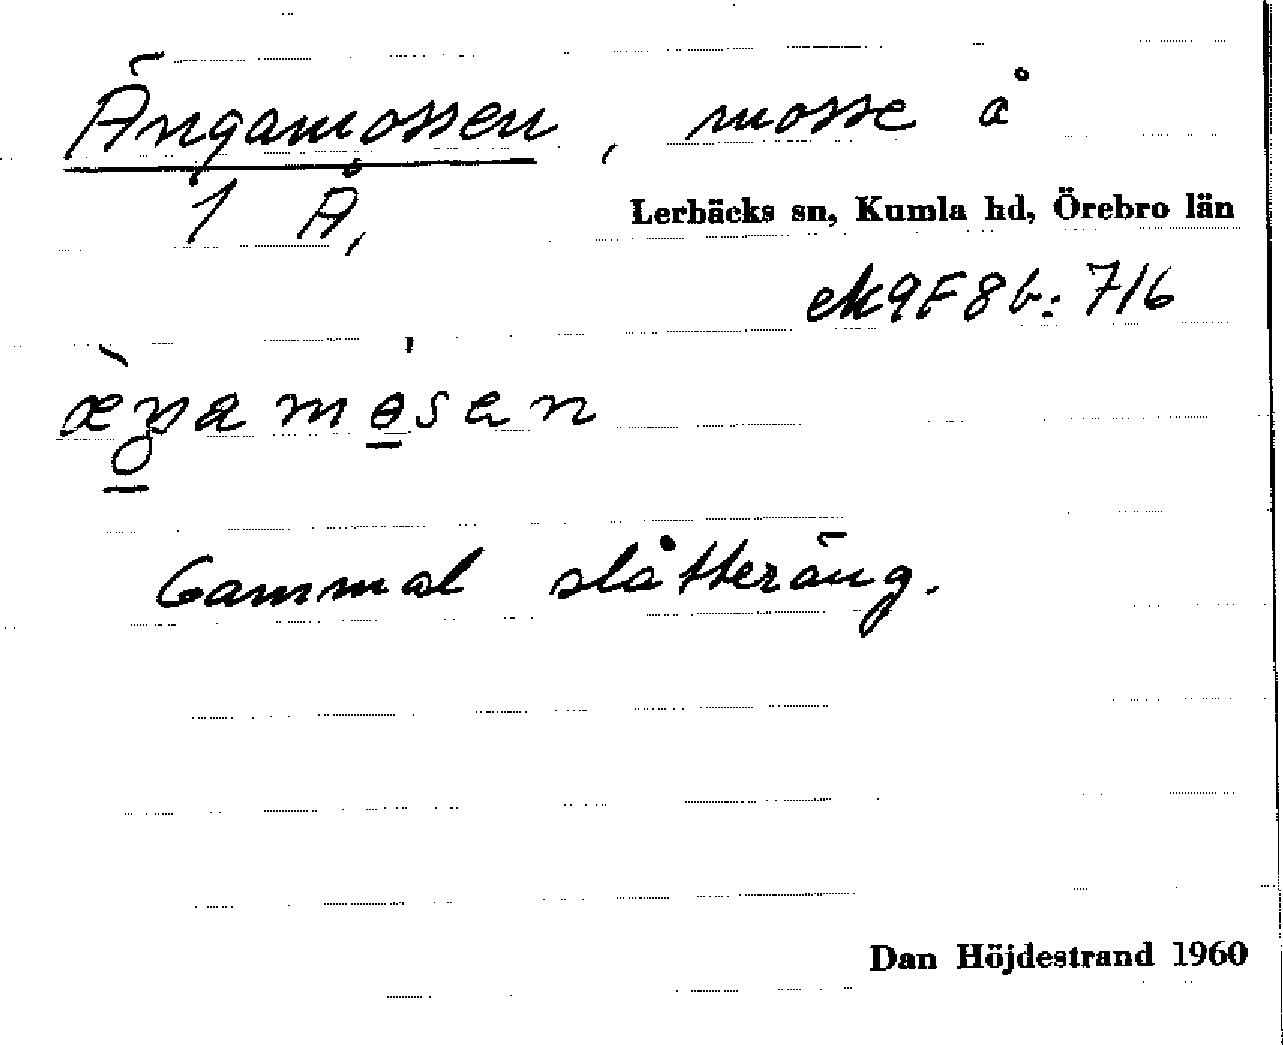 Ängamossen, mosse å
1 Å,
Lerbäcks sn, Kumla hd, Örebro län
ek 9F8b: 7/6
Gammal slåtteräng.
Dan Höjdestrand 1960